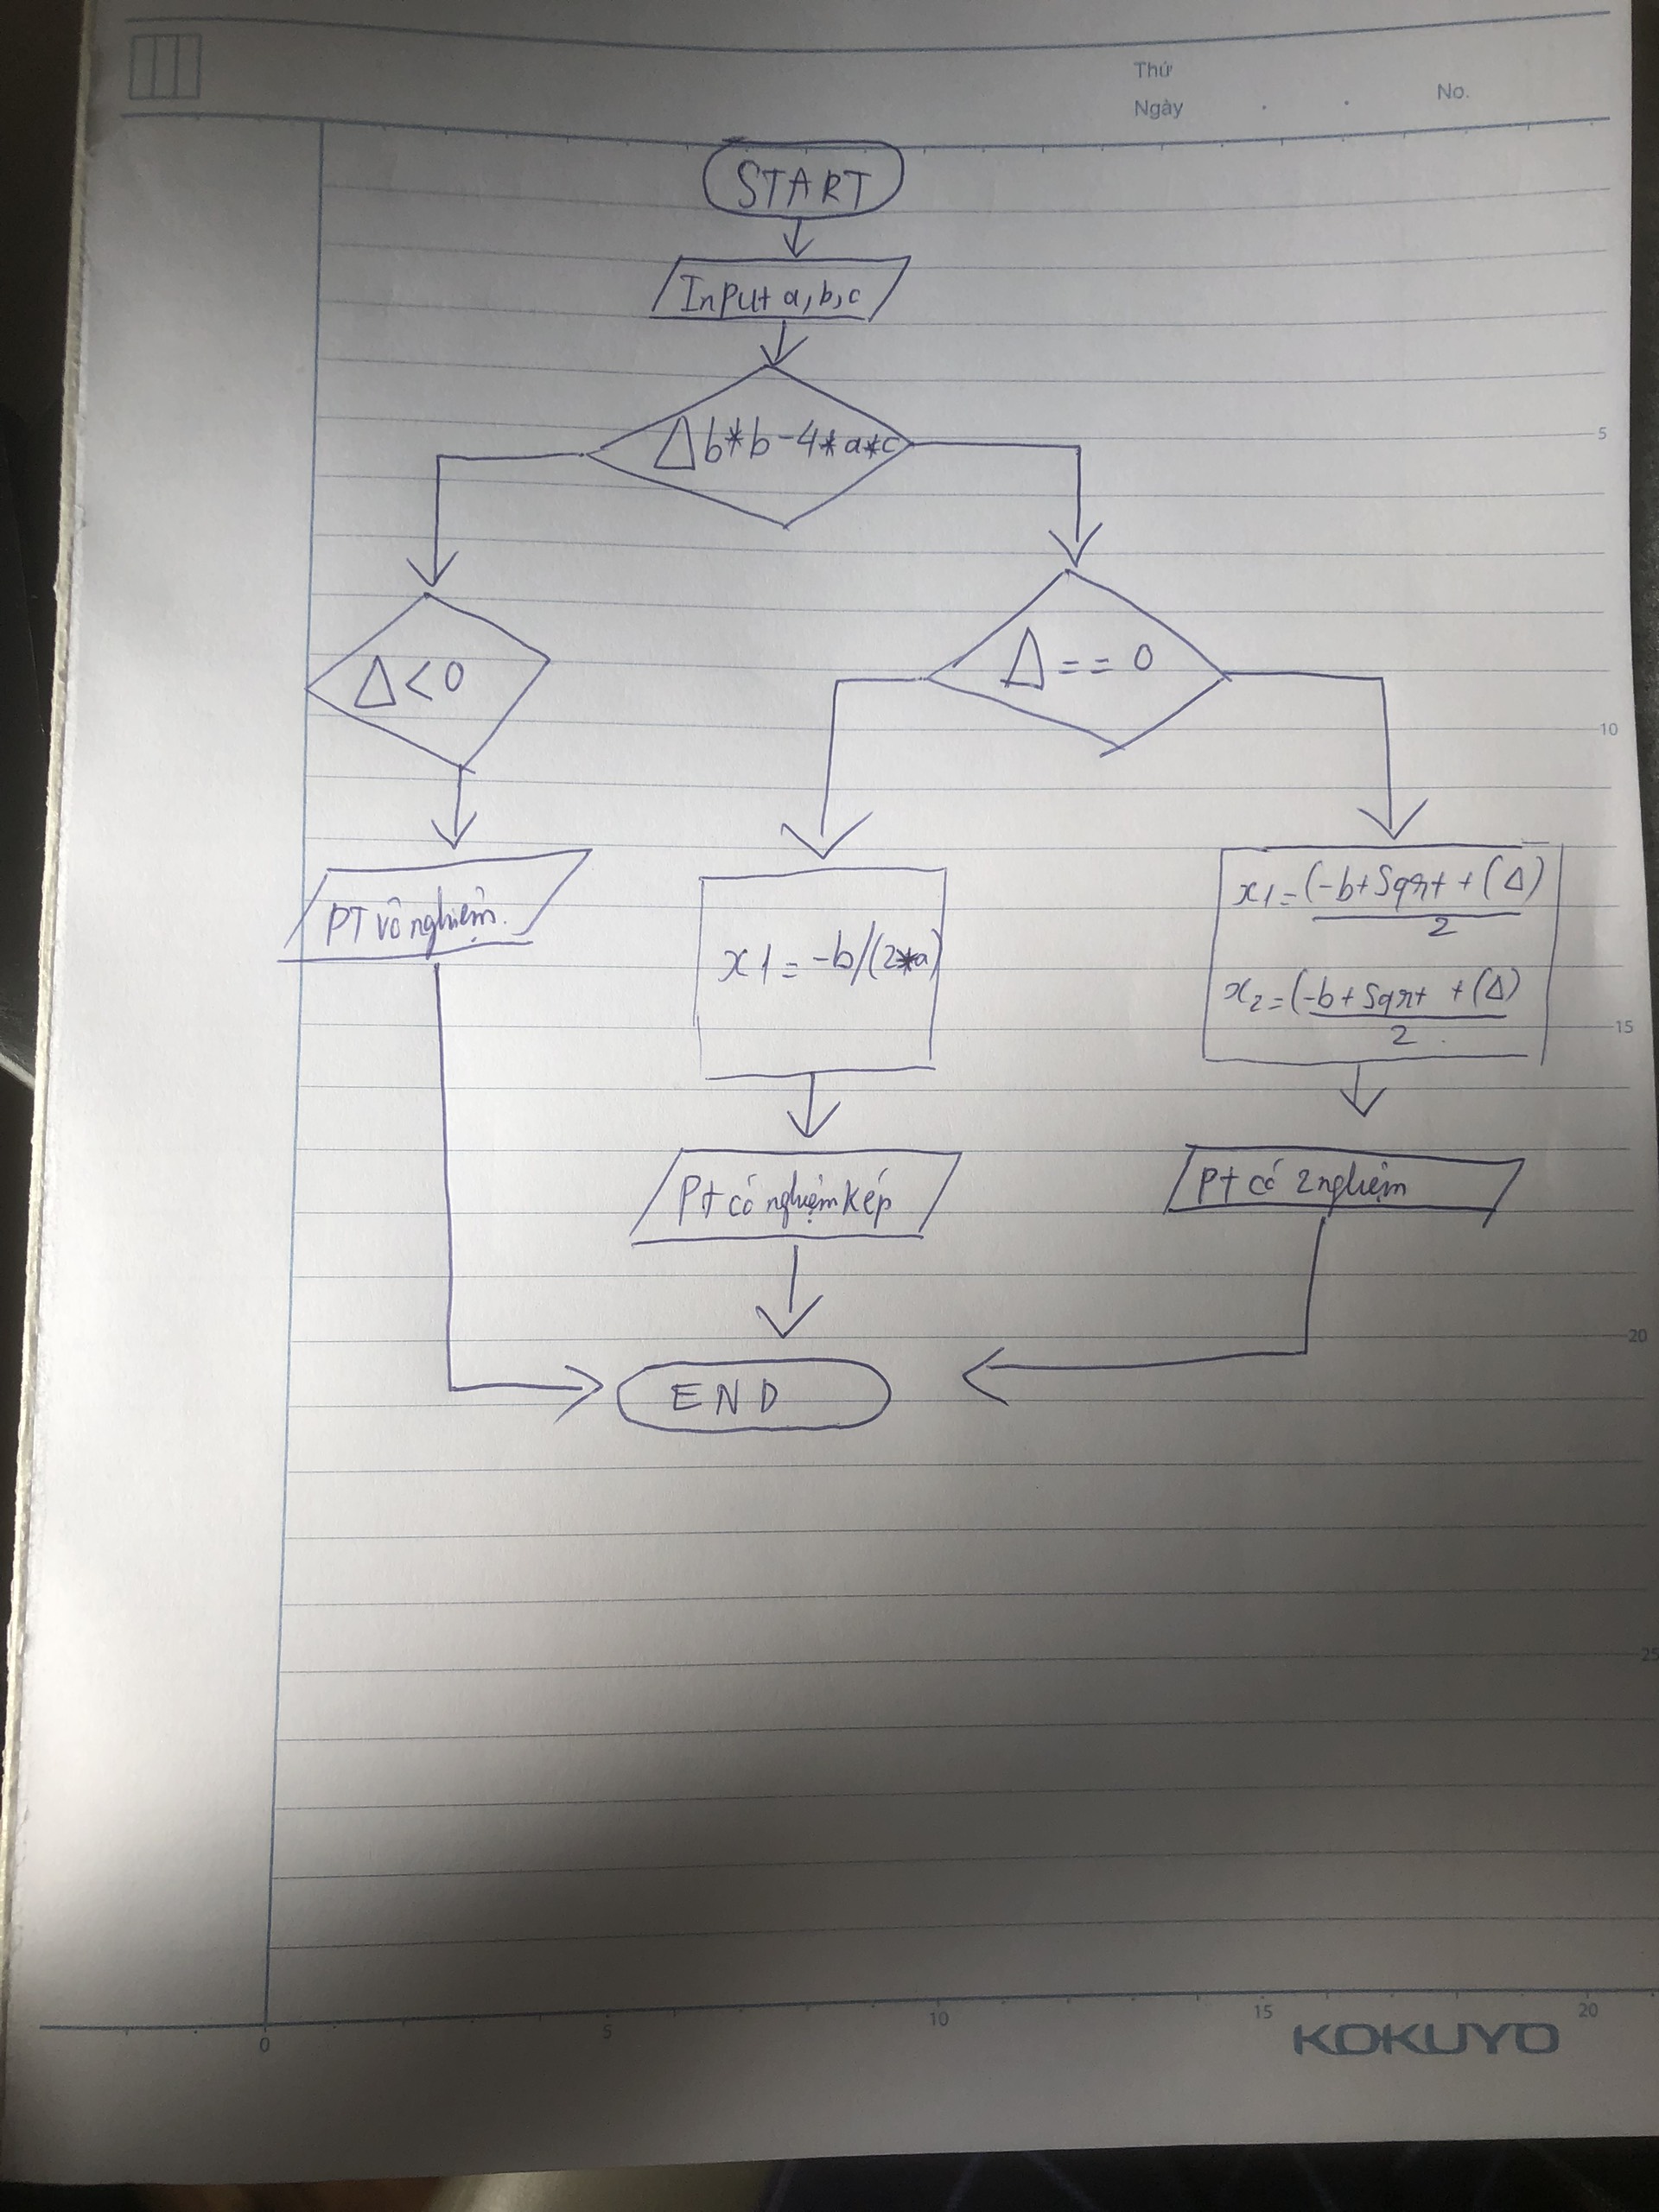 Thứ
Ngày . . No.
START
Input a, b, c
Δ b*b-4*a*c
5
Δ<0
Δ==0
10
PT vô nghiệm.
x1 = -b/(2*a)
x1=(-b+Sqrt+(Δ)
2
x2=(-b+Sqrt +(Δ)
2
15
Pt có nghiệm kép
Pt có 2 nghiệm
20
END
25
0 5 10 15 20
KOKUYO